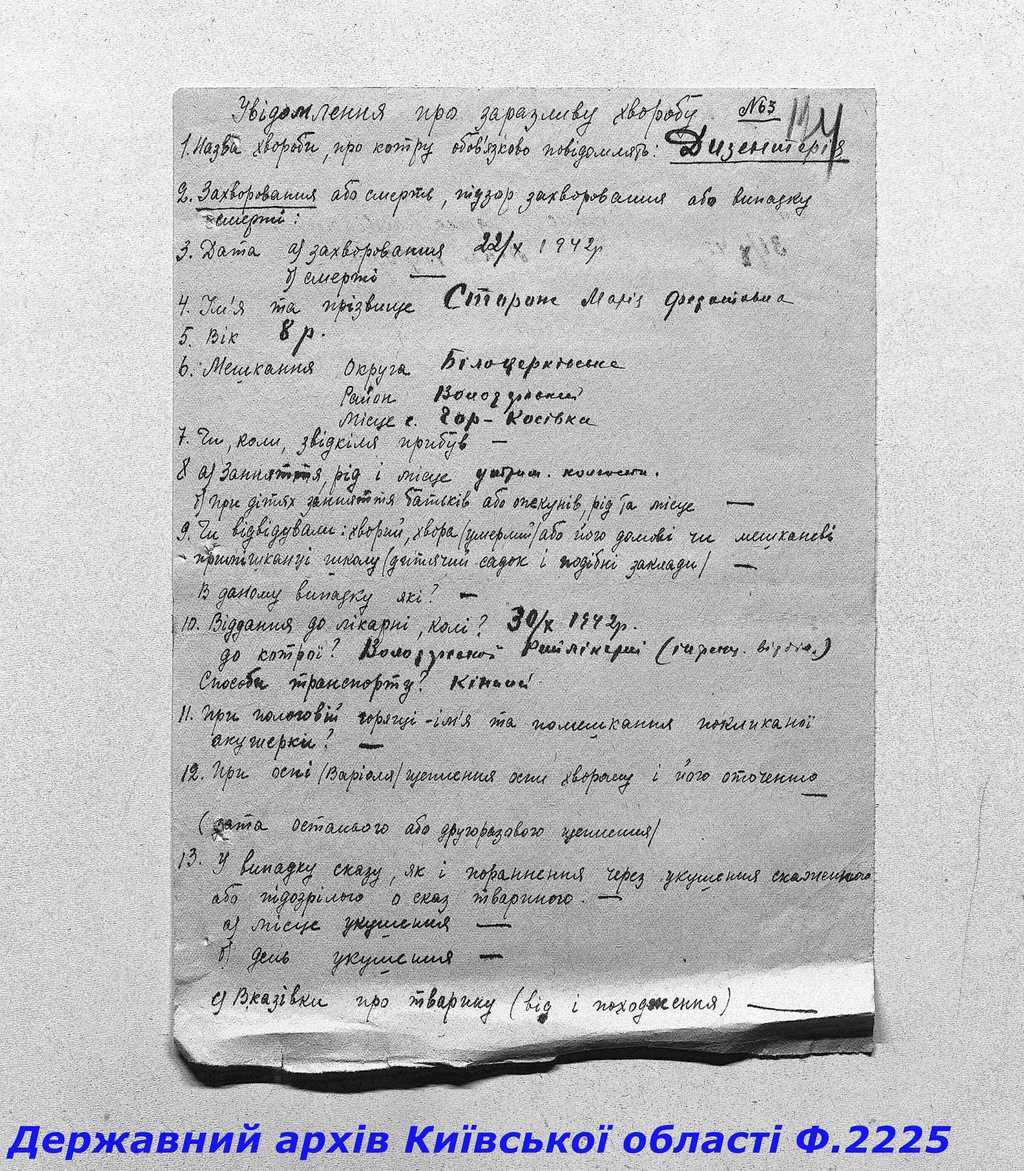 Увідомлення про заразливу хворобу №63
1. Назва хвороби, про котру обов'язково повідомлять: Дизентерія
2. Захворования або смерть, підзор захворовання або випадку
смерті:
3. Дата а) захворовання 22/X 1942р
б) смерті —
4. Ім'я та прізвище Сторож Марія Федотовна
5. Вік 8 р.
6. Мешкання Округа Білоцерківська
Район Володарський
Місце с. Гор-Косівка
7. Чи, коли, звідкіля прибув —
8 а) Заняття, рід і місце утрим.
б) При дітях заняття батьків або опекунів, рід та місце —
9. Чи відвідували: хворий, хвора (умерлий) або його домові чи мешканеві
помешканці школу (дитячий садок і подібні заклади) —
В даному випадку які? —
10. Віддання до лікарні, колі? 30/X 1942р.
до котрої? Володарской (інфекц. відділ.)
Способи транспорту? Кінний
11. При пологовій горячці - ім'я та помешкання покликаної
акушерки? —
12. При оспі (Варіоля) щеплення при хворому і його оточенню —
(дата останього або другоразового щеплення)
13. У випадку сказу, як і пораннення через укушення скаженного
або підозрілого о сказ твариного. —
а) місце укушення —
б) день укушення —
с) Вказівки про тварину (від і походження) —
Державний архів Київської області Ф.2225